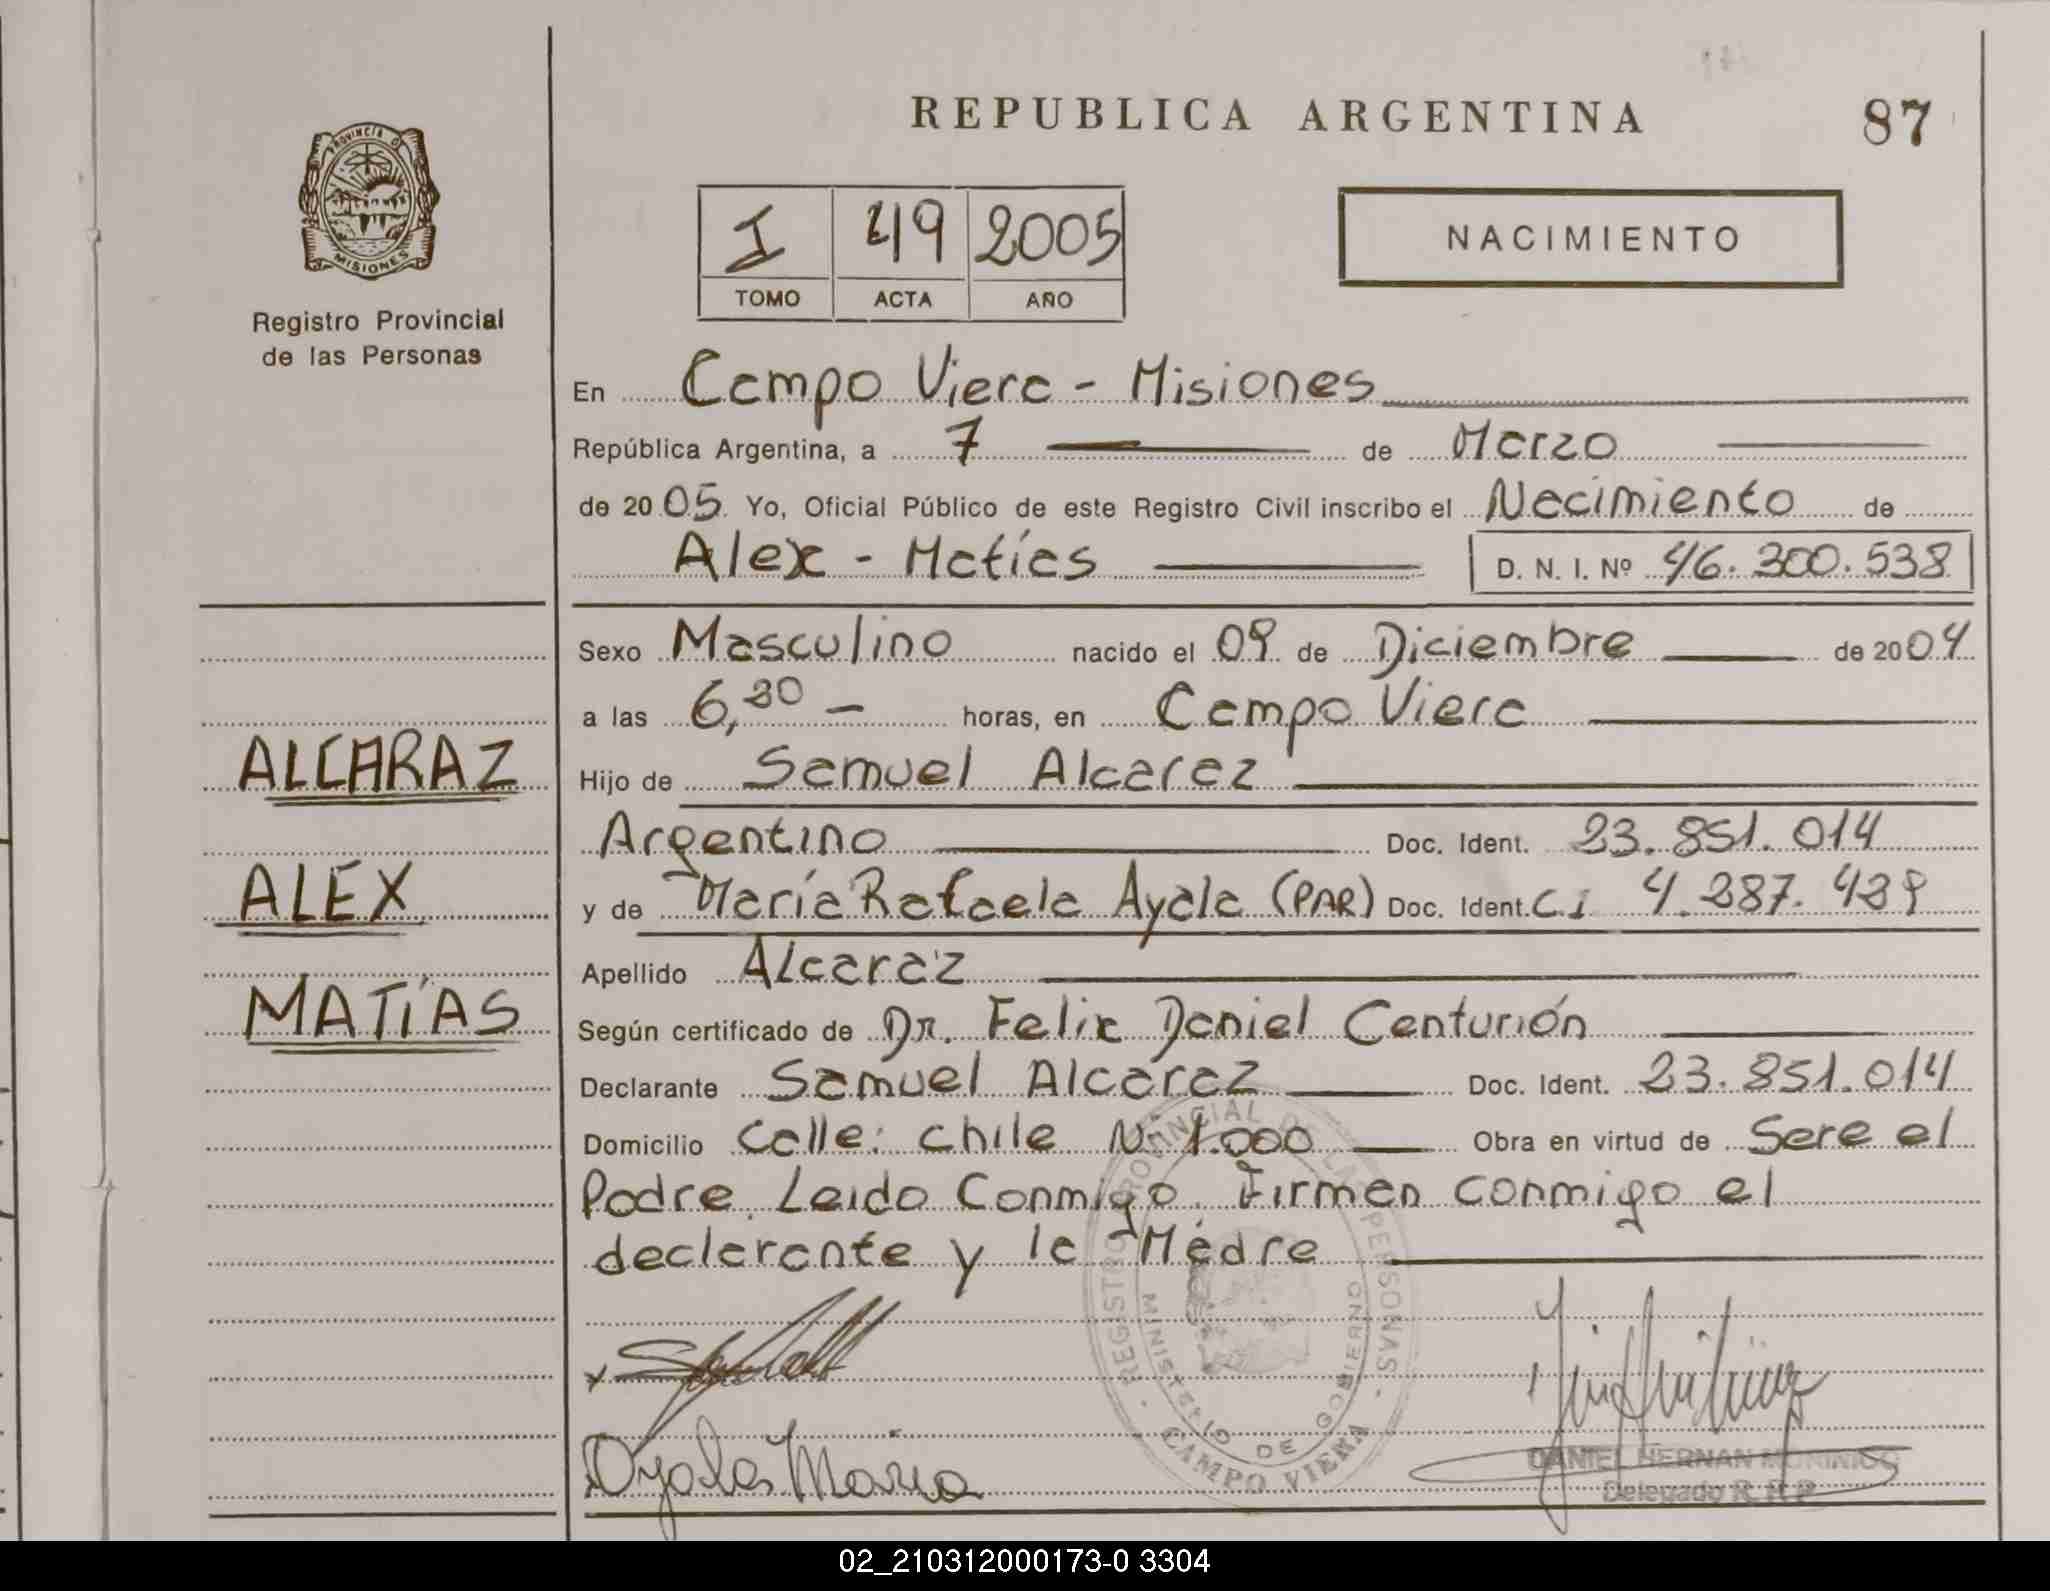 REPUBLICA ARGENTINA
87
PROVINCIA D
MISIONES
Registro Provincial
de las Personas
I 49 2005
TOMO ACTA AÑO
NACIMIENTO
En Campo Viera - Misiones
República Argentina, a 7 de Marzo
de 2005 Yo, Oficial Público de este Registro Civil inscribo el Nacimiento de
Alex - Matías D. N. I. Nº 46.300.538
Sexo Masculino nacido el 09 de Diciembre de 2004
a las 6,30 - horas, en Campo Viera
ALCARAZ
Hijo de Samuel Alcaraz
Argentino Doc. Ident. 23.851.014
ALEX
y de María Rafaela Ayala (PAR) Doc. Ident. C.I. 4.287.429
Apellido Alcaraz
MATÍAS
Según certificado de Dr. Felix Daniel Centurión
Declarante Samuel Alcaraz Doc. Ident. 23.851.014
Domicilio Calle: Chile Nº 1.000 Obra en virtud de Sere el
Padre. Leido Conmigo. Firman conmigo el
declarante y la Madre
REGISTRO PROVINCIAL DE LAS PERSONAS
MINISTERIO DE GOBIERNO
CAMPO VIERA
Ayala María
DANIEL HERNAN
Delegado R. P. P.
02_210312000173-0 3304